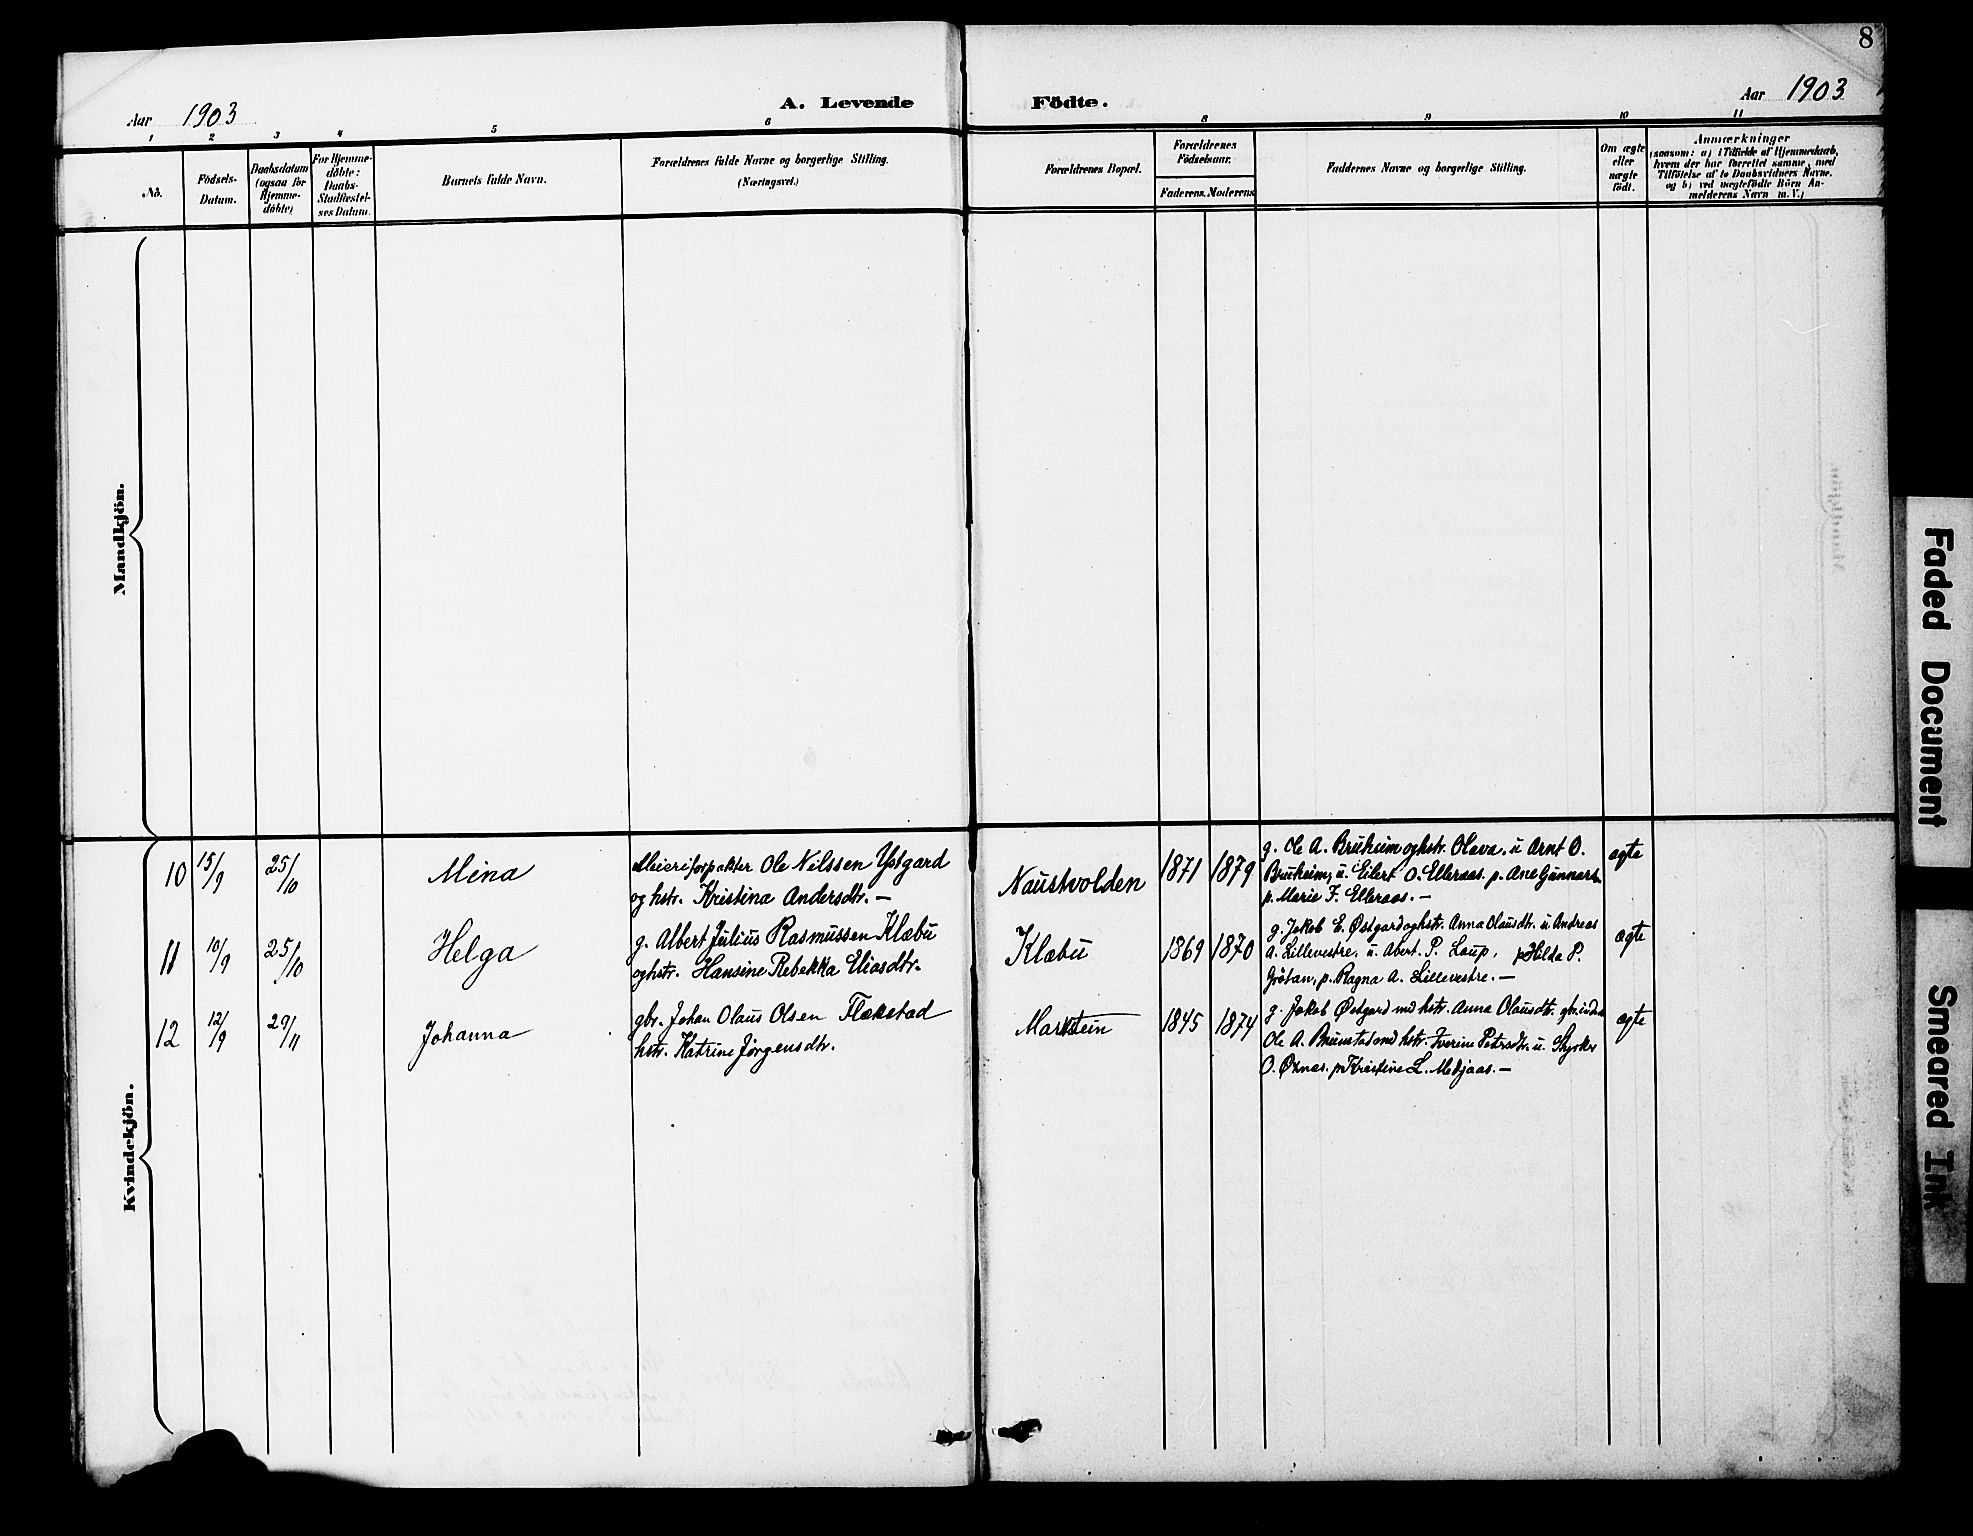 8
Aar 1903
A. Levende Födte.
Aar 1903
1 2 3 4 5 6 8 9 10 11
No.
Födsels-
Datum.
Daabsdatum
(ogsaa for
Hjemme-
döbte)
For Hjemme-
döbte:
Daabs-
Stadfæstel-
ses Datum.
Barnets fulde Navn.
Forældrenes fulde Navne og borgerlige Stilling.
(Næringsvei.)
Forældrenes Bopæl.
Forældrenes
Födselsaar.
Faderens. Moderens.
Faddernes Navne og borgerlige Stilling.
Om ægte
eller
uægte
födt.
Anmærkninger
(saasom: a) i Tilfælde af Hjemmedaab,
hvem der har forrettet samme, med
Tilföielse af to Daabsvidners Navne,
og b) ved uægtefödte Börn An-
melderens Navn m. V.)
Mandkjön.
Kvindekjön.
10 15/9 25/10 Mina
Meieriforpakter Ole Nilssen Ystgard
og hstr. Kristina Andersdtr. —
Naustvolden 1871 1879
g. Ole A. Bruheim og hstr. Olava, u Arnt O.
Bruheim, u. Eilert O. Elleraas. p. Ane Gunnars
p. Marie F. Elleraas. —
ægte
11 10/9 25/10 Helga
g. Albert Julius Rasmussen Klæbu
og hstr. Hansine Rebekka Eliasdtr.
Klæbu 1869 1870
g. Jakob E. Østgard og hstr. Anna Olausdtr. u Andreas
A. Lillevestre. u. Abert. P. Laup, p Hilda P.
Grötan, p. Ragna A. Lillevestre. —
ægte
12 12/9 29/11 Johanna
gbr. Johan Olaus Olsen Flækstad
hstr. Katrine Jørgensdtr.
Markstein 1845 1874
g. Jakob Østgard med hstr. Anna Olausdtr.
Ole A. med hstr. Iverine Petersdtr. u.
O. Øxnas. p Kristine L. Medjaas. —
ægte
Faded Document
Smeared Ink